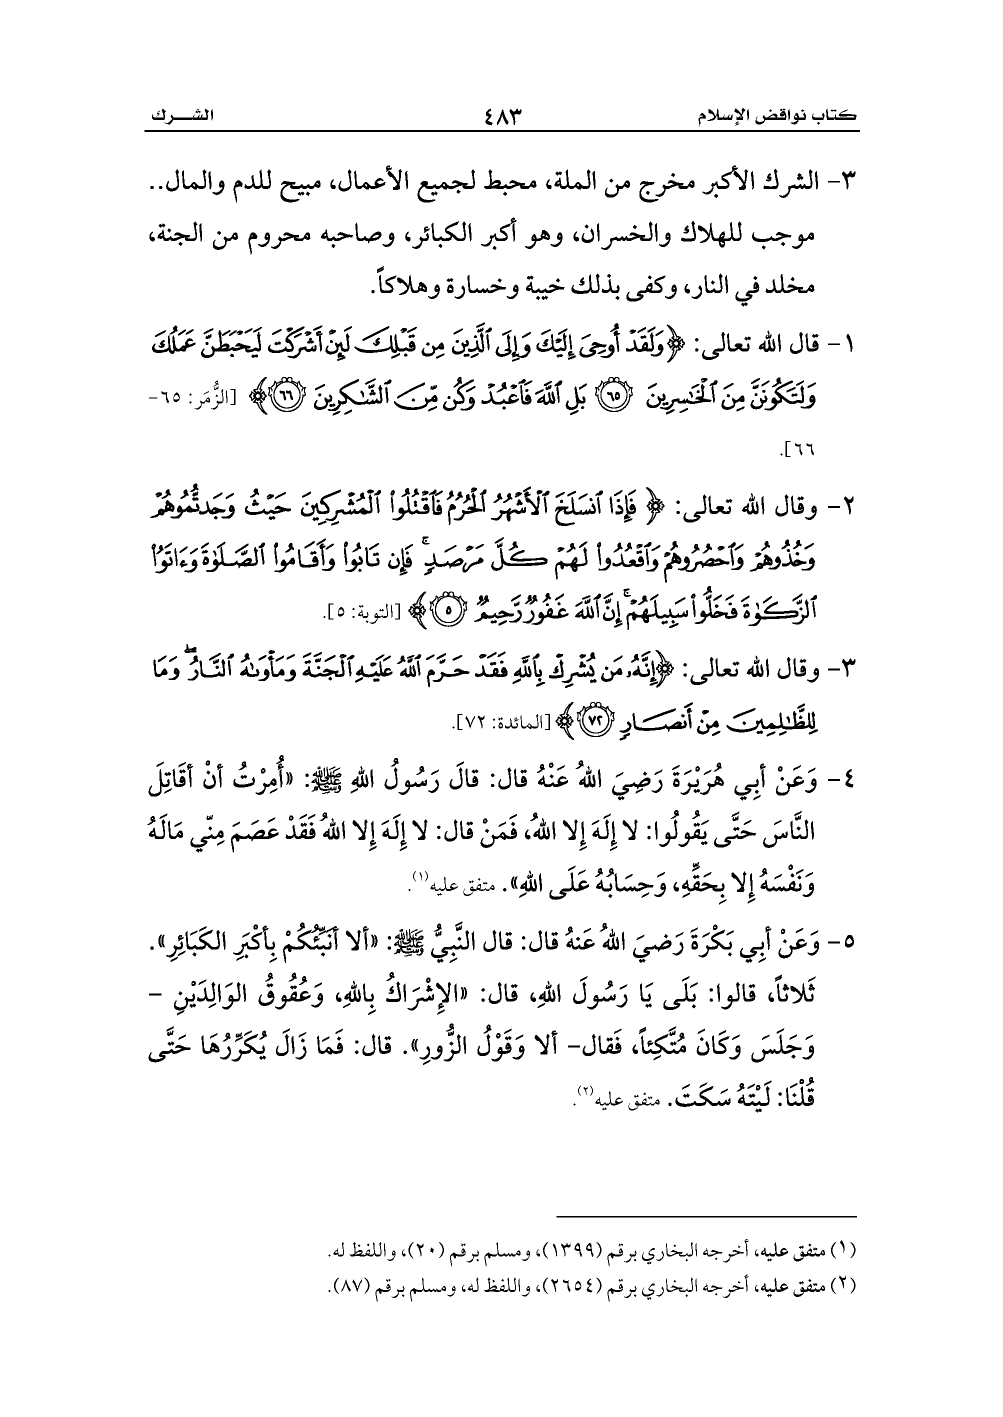 كتاب نواقض الإسلام ٤٨٣ الشـــرك
٣- الشرك الأكبر مخرج من الملة، محبط لجميع الأعمال، مبيح للدم والمال..
موجب للهلاك والخسران، وهو أكبر الكبائر، وصاحبه محروم من الجنة،
مخلد في النار، وكفى بذلك خيبة وخسارة وهلاكاً.
١- قال الله تعالى: ﴿وَلَقَدْ أُوحِيَ إِلَيْكَ وَإِلَى ٱلَّذِينَ مِن قَبْلِكَ لَئِنْ أَشْرَكْتَ لَيَحْبَطَنَّ عَمَلُكَ
وَلَتَكُونَنَّ مِنَ ٱلْخَٰسِرِينَ ٦٥ بَلِ ٱللَّهَ فَٱعْبُدْ وَكُن مِّنَ ٱلشَّٰكِرِينَ ٦٦﴾ [الزُّمَر: ٦٥-
٦٦].
٢- وقال الله تعالى: ﴿فَإِذَا ٱنسَلَخَ ٱلْأَشْهُرُ ٱلْحُرُمُ فَٱقْتُلُواْ ٱلْمُشْرِكِينَ حَيْثُ وَجَدتُّمُوهُمْ
وَخُذُوهُمْ وَٱحْصُرُوهُمْ وَٱقْعُدُواْ لَهُمْ كُلَّ مَرْصَدٍۚ فَإِن تَابُواْ وَأَقَامُواْ ٱلصَّلَوٰةَ وَءَاتَوُاْ
ٱلزَّكَوٰةَ فَخَلُّواْ سَبِيلَهُمْۚ إِنَّ ٱللَّهَ غَفُورٌ رَّحِيمٌ ٥﴾ [التوبة: ٥].
٣- وقال الله تعالى: ﴿إِنَّهُۥ مَن يُشْرِكْ بِٱللَّهِ فَقَدْ حَرَّمَ ٱللَّهُ عَلَيْهِ ٱلْجَنَّةَ وَمَأْوَىٰهُ ٱلنَّارُۖ وَمَا
لِلظَّٰلِمِينَ مِنْ أَنصَارٍ ٧٢﴾ [المائدة: ٧٢].
٤- وَعَنْ أبِي هُرَيْرَةَ رَضِيَ اللهُ عَنْهُ قال: قالَ رَسُولُ اللهِ ﷺ: «أُمِرْتُ أنْ أقَاتِلَ
النَّاسَ حَتَّى يَقُولُوا: لا إلَهَ إلا اللهُ، فَمَنْ قال: لا إلَهَ إلا اللهُ فَقَدْ عَصَمَ مِنِّي مَالَهُ
وَنَفْسَهُ إلا بِحَقِّهِ، وَحِسَابُهُ عَلَى اللهِ». متفق عليه(١).
٥- وَعَنْ أبِي بَكْرَةَ رَضيَ اللهُ عَنهُ قال: قال النَّبِيُّ ﷺ: «ألا أنَبِّئُكُمْ بِأكْبَرِ الكَبَائِرِ».
ثَلاثاً، قالوا: بَلَى يَا رَسُولَ اللهِ، قال: «الإشْرَاكُ بِاللهِ، وَعُقُوقُ الوَالِدَيْنِ -
وَجَلَسَ وَكَانَ مُتَّكِئاً، فَقال- ألا وَقَوْلُ الزُّورِ». قال: فَمَا زَالَ يُكَرِّرُهَا حَتَّى
قُلْنَا: لَيْتَهُ سَكَتَ. متفق عليه(٢).
(١) متفق عليه، أخرجه البخاري برقم (١٣٩٩)، ومسلم برقم (٢٠)، واللفظ له.
(٢) متفق عليه، أخرجه البخاري برقم (٢٦٥٤)، واللفظ له، ومسلم برقم (٨٧).